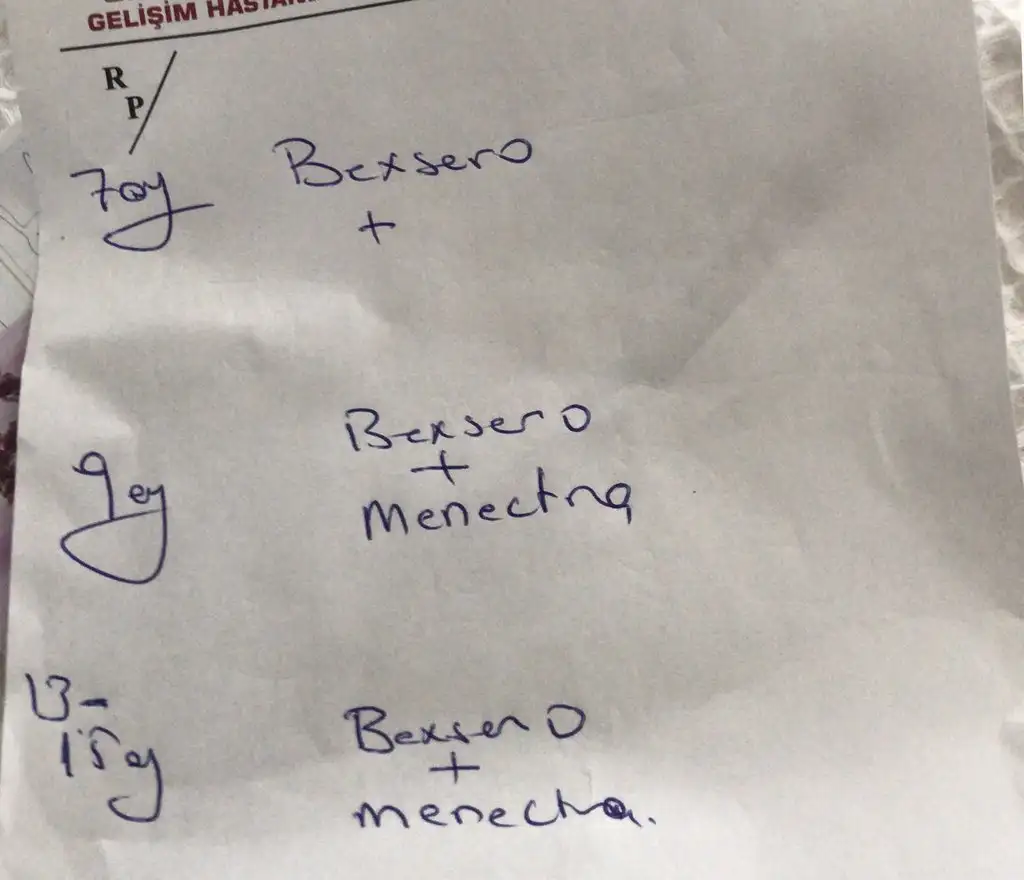 GELİŞİM HASTAN
R
P/
7ay Bexsero
+
9ay Bexsero
+
Menectra
13-
15ay Bexsero
+
menectra.